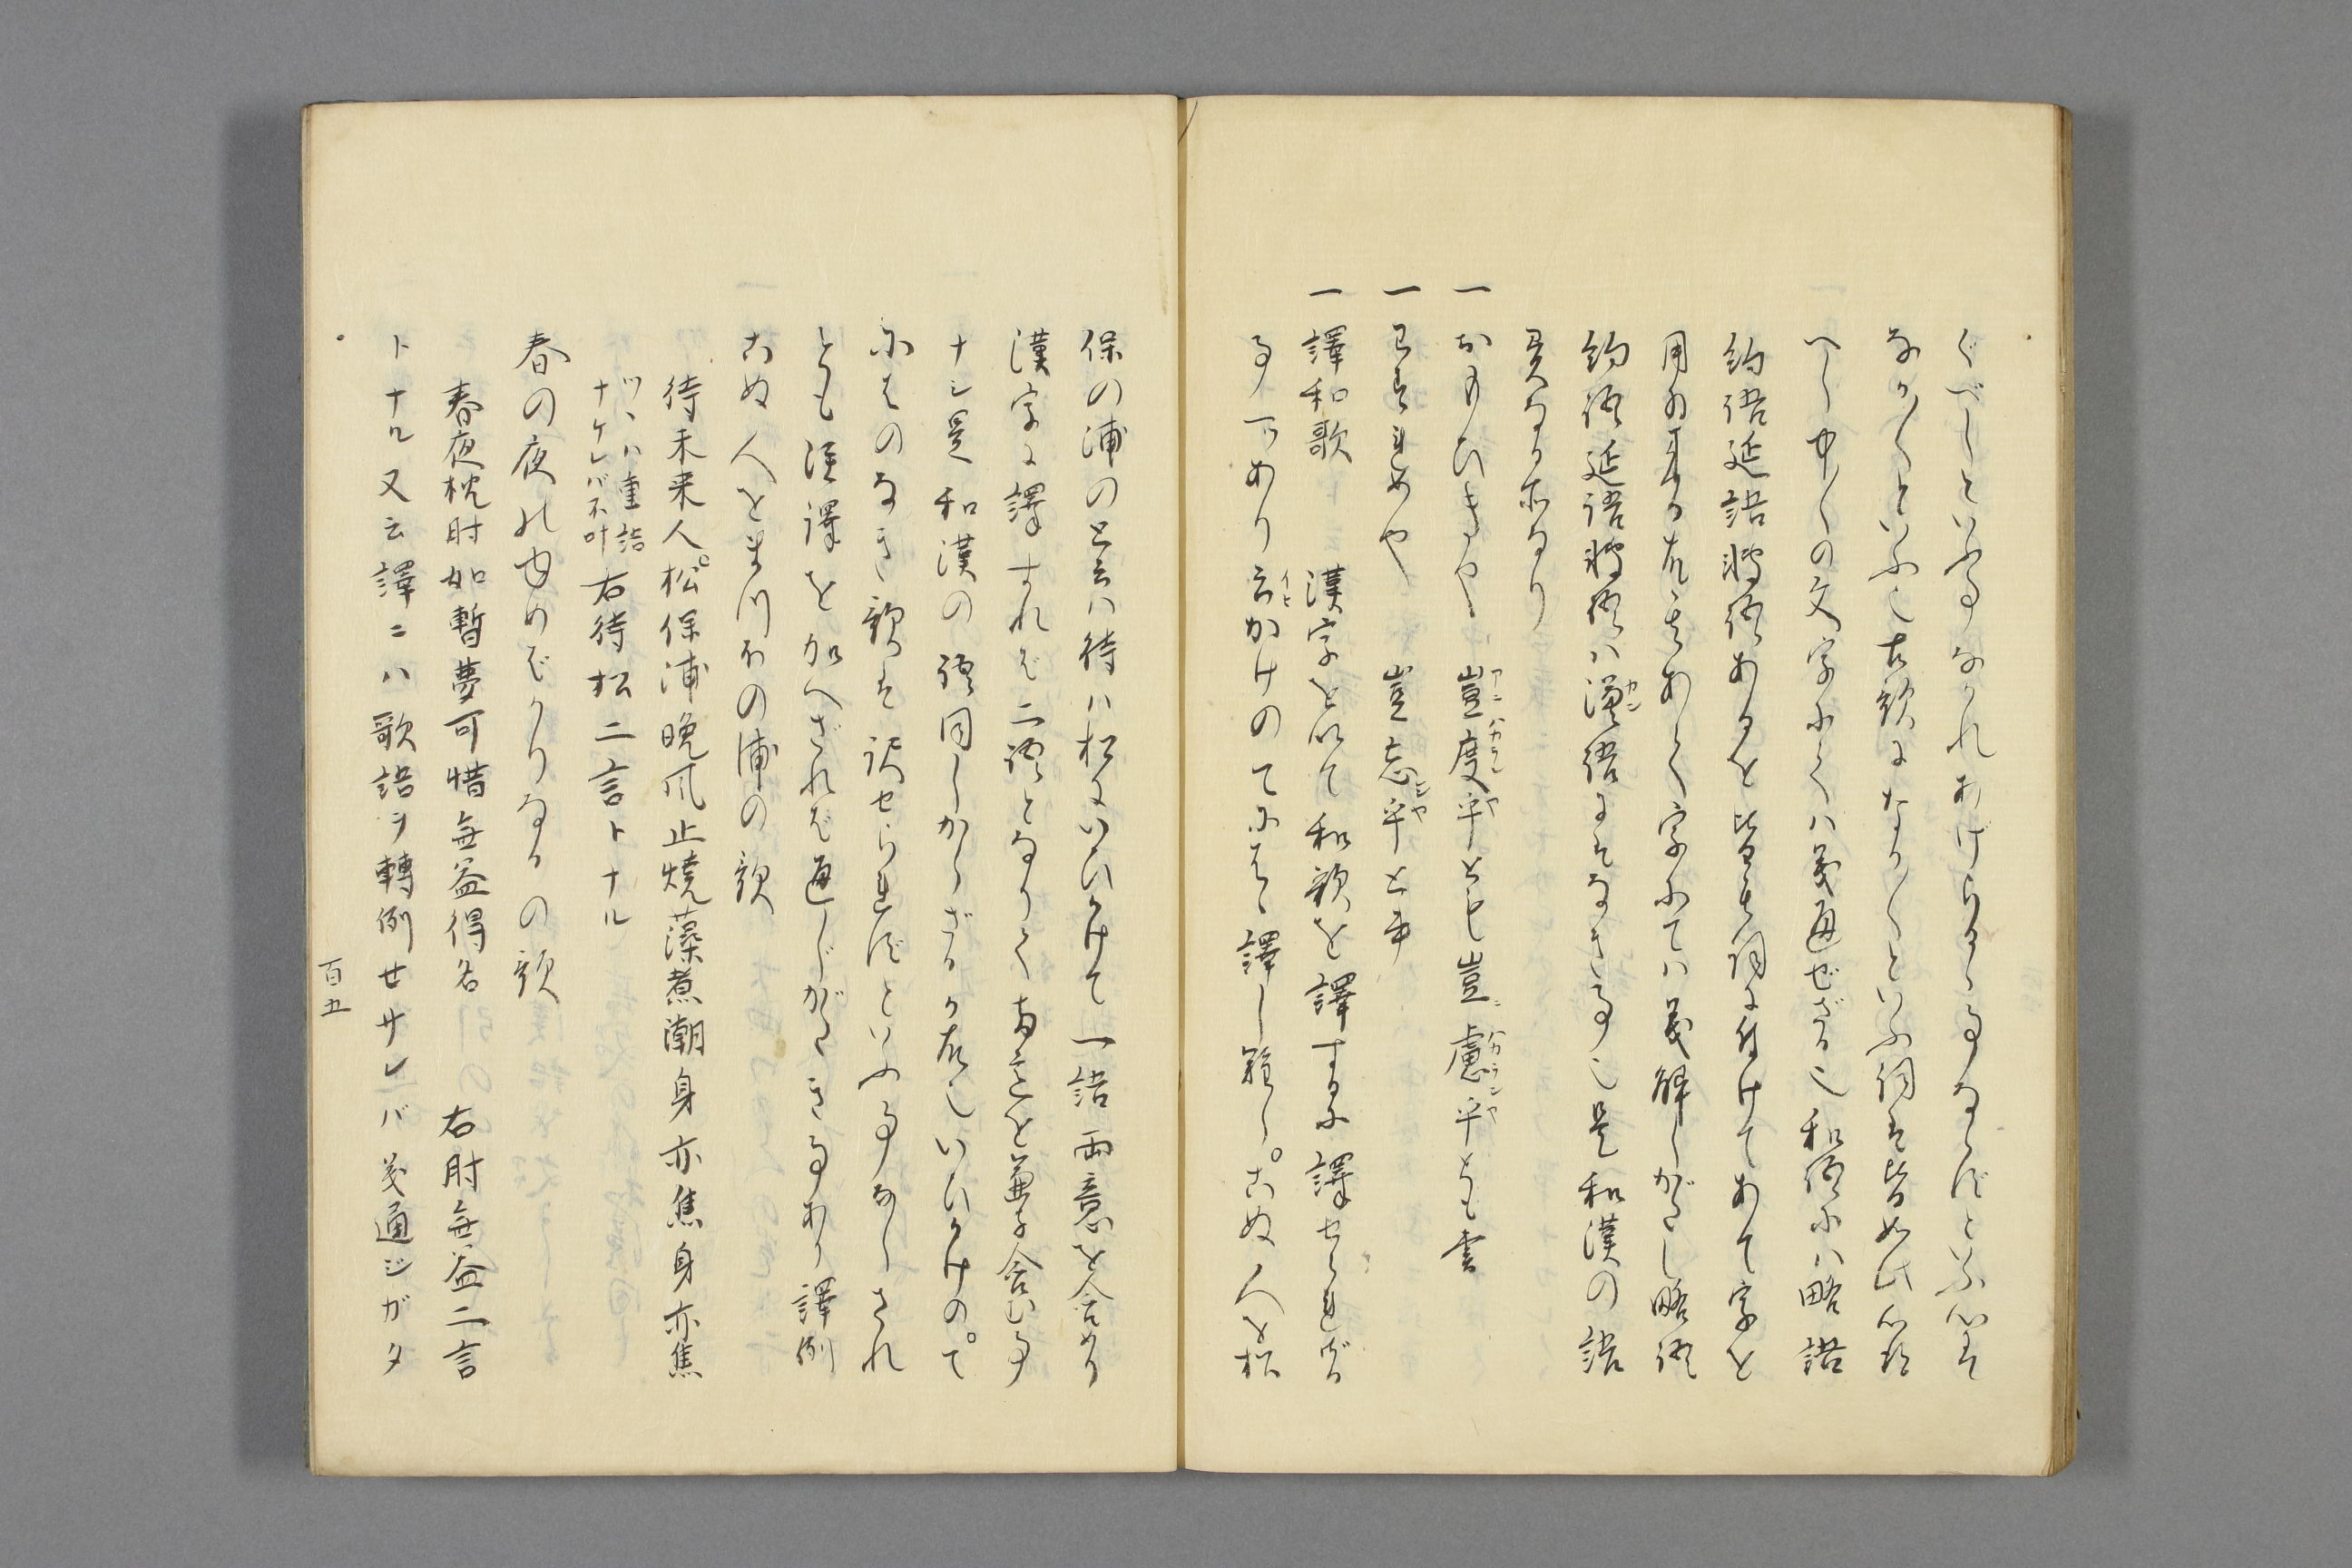 ぐべしといふ事なかれあげらるゝ事ならずといふ心は
なかくといふ也古歌になかくといふ詞は皆如此心得
べし中くの文字にては義通ぜざる也和語には略語
約語延語轉語あるを皆其詞に付けてあて字を
用ゐ来る故其あて字にては義解しがたし略語
約語延語轉語は漢語にはなき事也是和漢の語
異なる所なり
一 おもひきや 豈度乎とも豈慮乎とも書
一 わすれめや 豈忘乎と書
一 譯和歌 漢字を以て和歌を譯するに譯せられざる
事一つあり云かけのてにをは譯し難し。こぬ人を松
保の浦のと云は待は松にいひかけて一語両意を含めり
漢字に譯すれば二語となりて両意を兼含む事
ナシ是和漢の語同しからざるが故也いひかけの。て
にをはのなき歌は訳せられずといふ事なしされ
とも注譯を加へざれば通じがたき事あり譯例
こぬ人をまつほの浦の歌
待未来人。松保浦晩風止焼藻煮潮身亦焦身亦焦
ツヽハ重語
ナケレバ不叶
右待松二言トナル
春の夜のゆめばかりなるの歌
春夜枕肘如暫夢可惜無益得名 右肘無益二言
トナル又云譯ニハ歌語ヲ轉例セサレバ義通ジガタ
百五